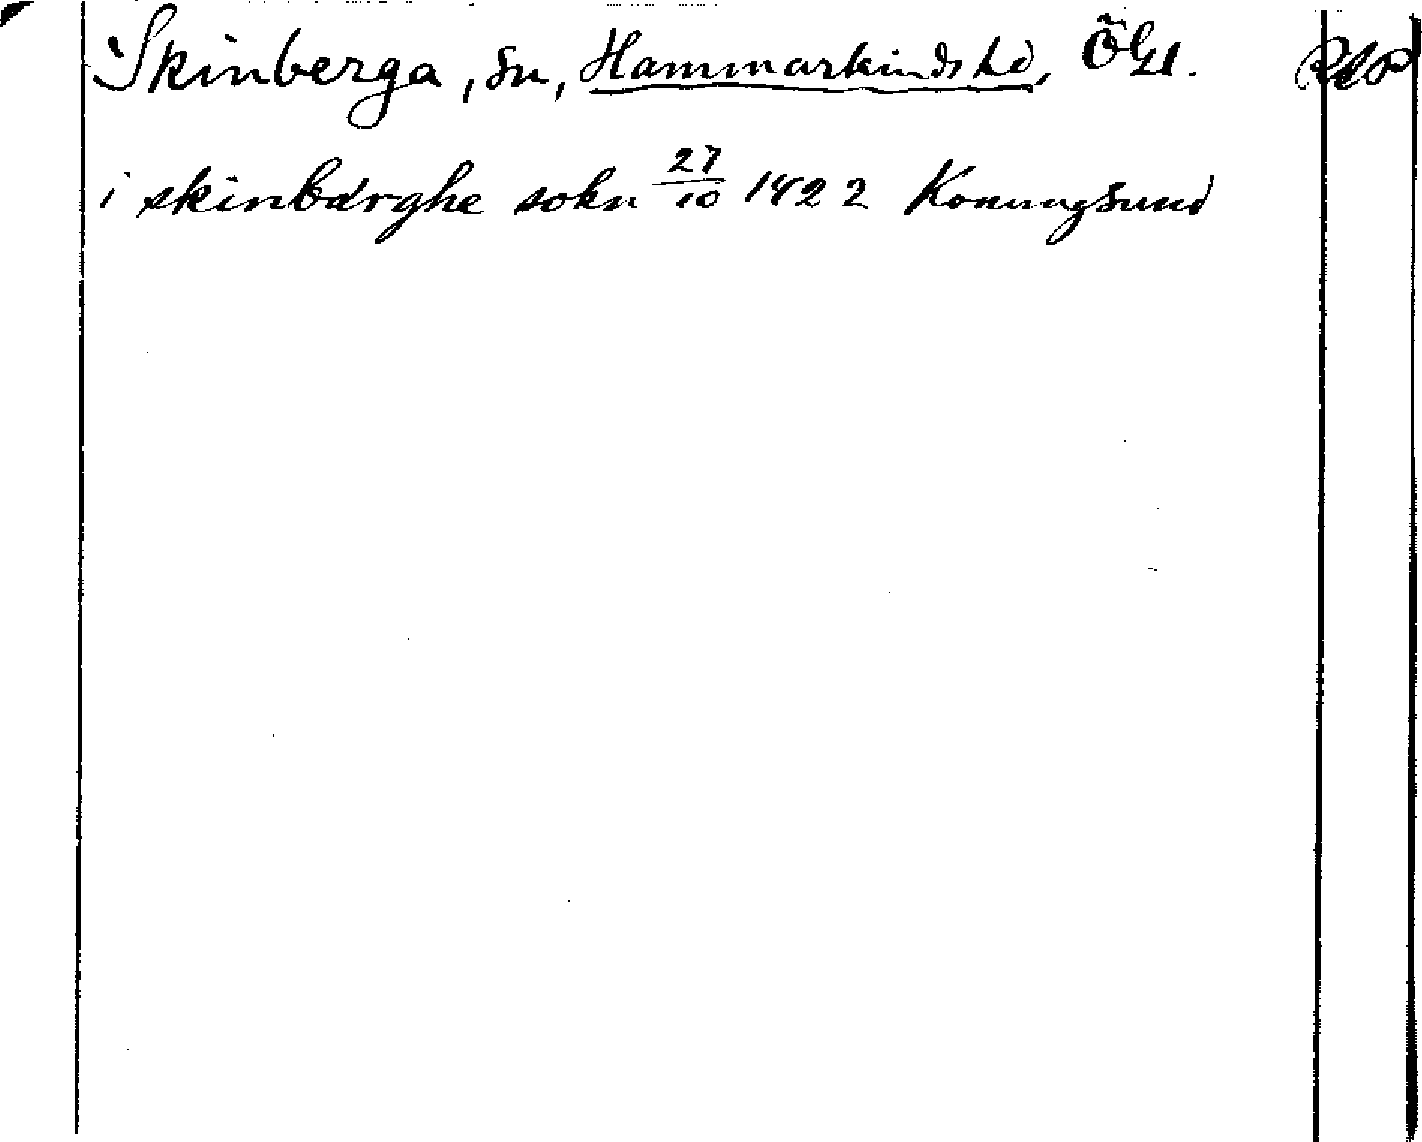 Skinberga, sn, Hammarkinds hd, Ögl. RAP
i skinbærghe sokn 27/10 1422 Konungsund